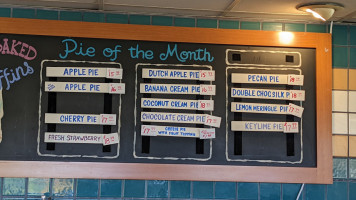 BAKED
Muffins
Pie of the Month
APPLE PIE 15
APPLE PIE 16
CHERRY PIE 17
FRESH STRAWBERRY
DUTCH APPLE PIE 15
BANANA CREAM PIE
COCONUT CREAM PIE
CHOCOLATE CREAM PIE
17 CHEESE PIE
WITH FRUIT TOPPING
PECAN PIE 18
DOUBLE CHOC SILK
LEMON MERINGUE PIE
KEYLIME PIE 17